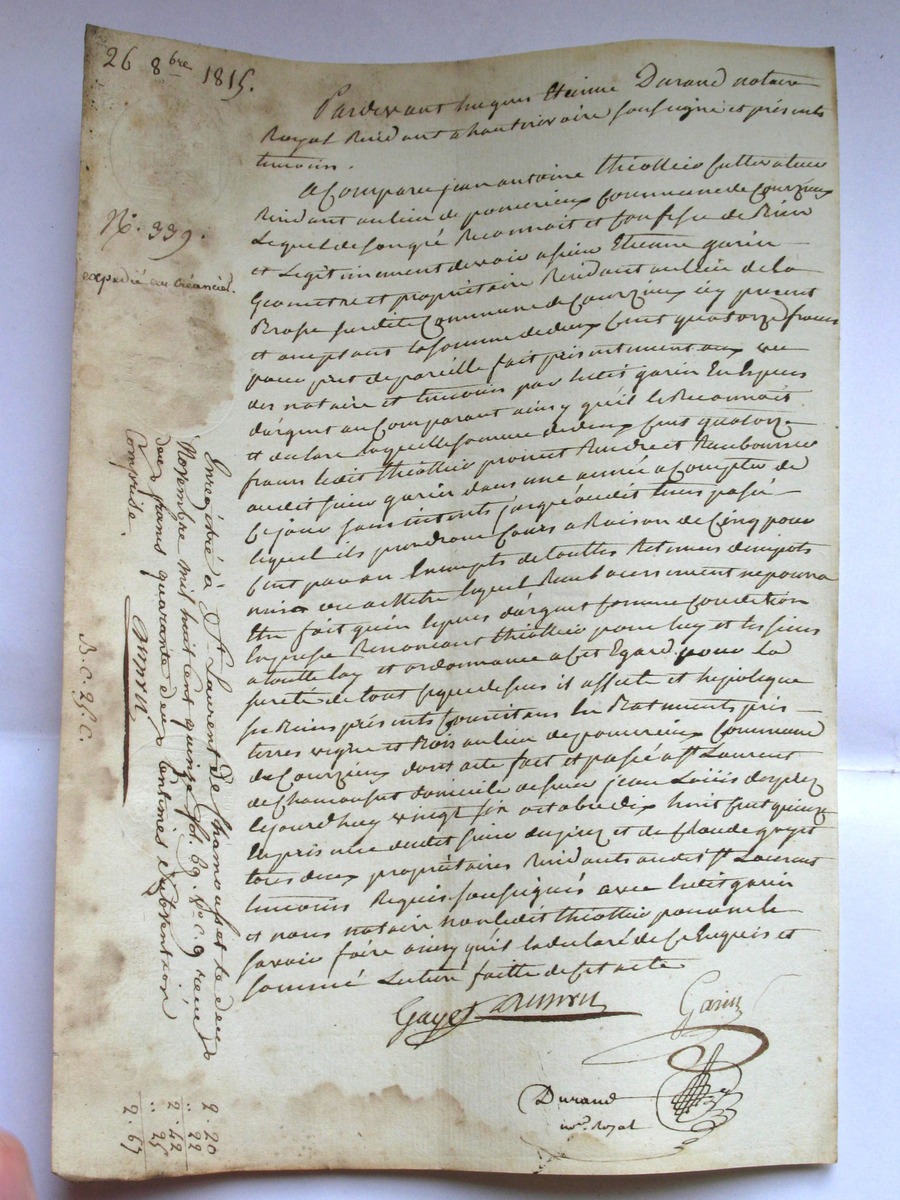 26 8bre 1815.
Pardevant hugues Etienne Durand notaire
Royal Résidant a hauterivoire soussigné et présents
temoins.
a Comparu jean antoine thiollier Cultivateur
Résidant au lieu de pomerieux Commune de Courzieux
Lequel de son gré Reconnait et Confesse de Bien
et Légitimement devoir a sieur Etienne garin
Géometre et propriétaire Résidant au lieu de la
Brosse susdite Commune de Courzieux icy present
et acceptant la somme de deux Cent quatorze francs
pour pret de pareille fait présentement aux vu
des notaire et temoins par ledit garin En Especes
d'argent au Comparant ainsy qu'il le Reconnait
et declare laquelle somme de deux Cents quatorze
francs ledit thiollier promet Rendre et Rembourser
audit sieur garin dans une année a Compter de
Ce jour sans interets jusque audit tems passé
lequel ils prendront Cours a Raison de Cinq pour
Cent par an Exempts de touttes Retenues d'impots
mises ou a Mettre lequel Remboursement ne pourra
Etre fait qu'en Especes d'argent Comme Condition
Expresse Renoncant thiollier pour luy et les siens
a toutte loy et ordonnance a Cet Egard. pour La
sureté de tout Ce que dessus il affecte et hipoteque
ses Biens présents Consistans En Batiments prés
terres vigne et Bois au lieu de pomerieux Commune
de Courzieux dont acte fait et passé a St Laurent
de Chamousset domicile de sieur jean Louis
lejourdhuy vingt six octobre dix huit Cent quinze
En présence dudit sieur et de Claude gayet
tous deux propriétaires Résidants audit St Laurent
temoins Requis soussignés avec ledit garin
et nous notaire non ledit thiollier pour ne le
savoir faire ainsy qu'il l'a declaré de Ce Enquis et
sommé Lecture faitte de Cet acte
Gayet
Garin
Durand
nre Royal
N. 339.
expedié au créancier.
Enregistré à St Laurent de Chamousset le deux
Novembre mil huit cent quinze fol. 69. Vo. c. 9 recu
deux francs quarante deux centimes subvention
Comprise.
B. C. 25. C.
2. 20
" 22
2. 42
" 25
2. 67